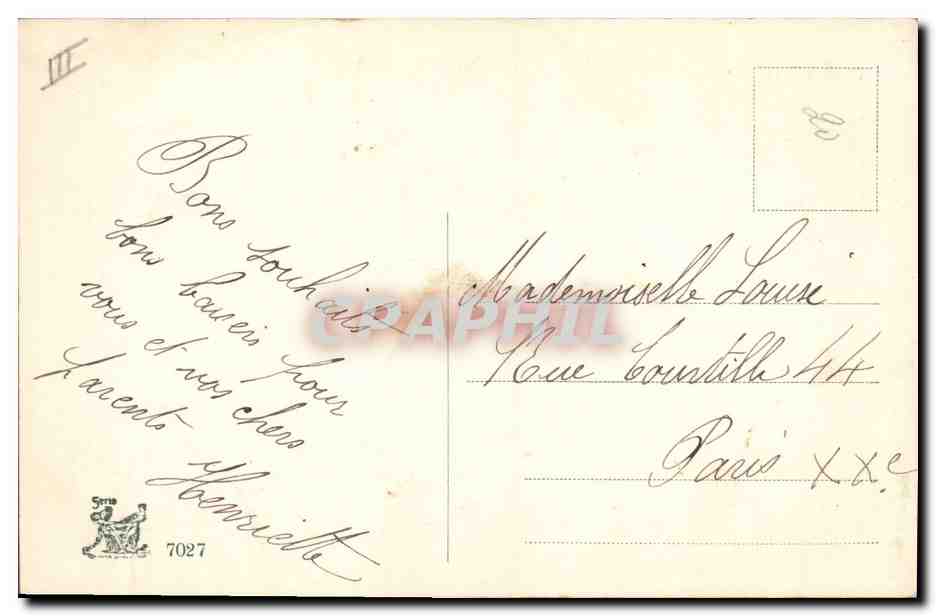 III
20
Bons souhaits
bons baisers pour
vous et vos chers
parents
Henriette
Mademoiselle Louise
Rue Courtille 44
Paris XXe
CPAPHIL
Serie
7027